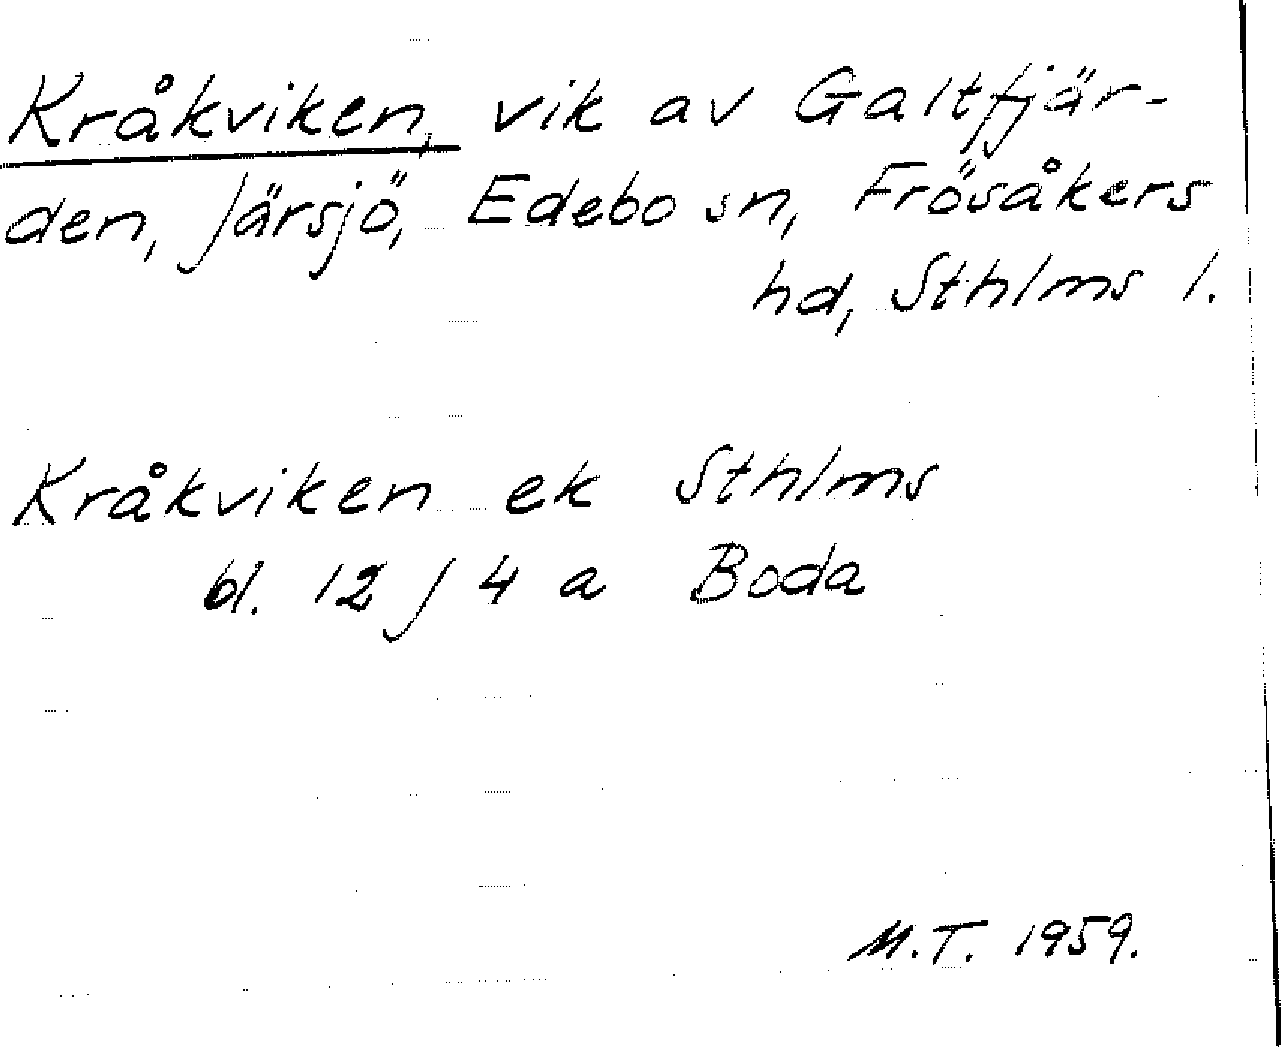 Kråkviken, vik av Galtfjär-
den, Järsjö, Edebo sn, Frösåkers
hd, Sthlms l.
Kråkviken ek Sthlms
bl. 12 J 4 a Boda
M.T. 1959.